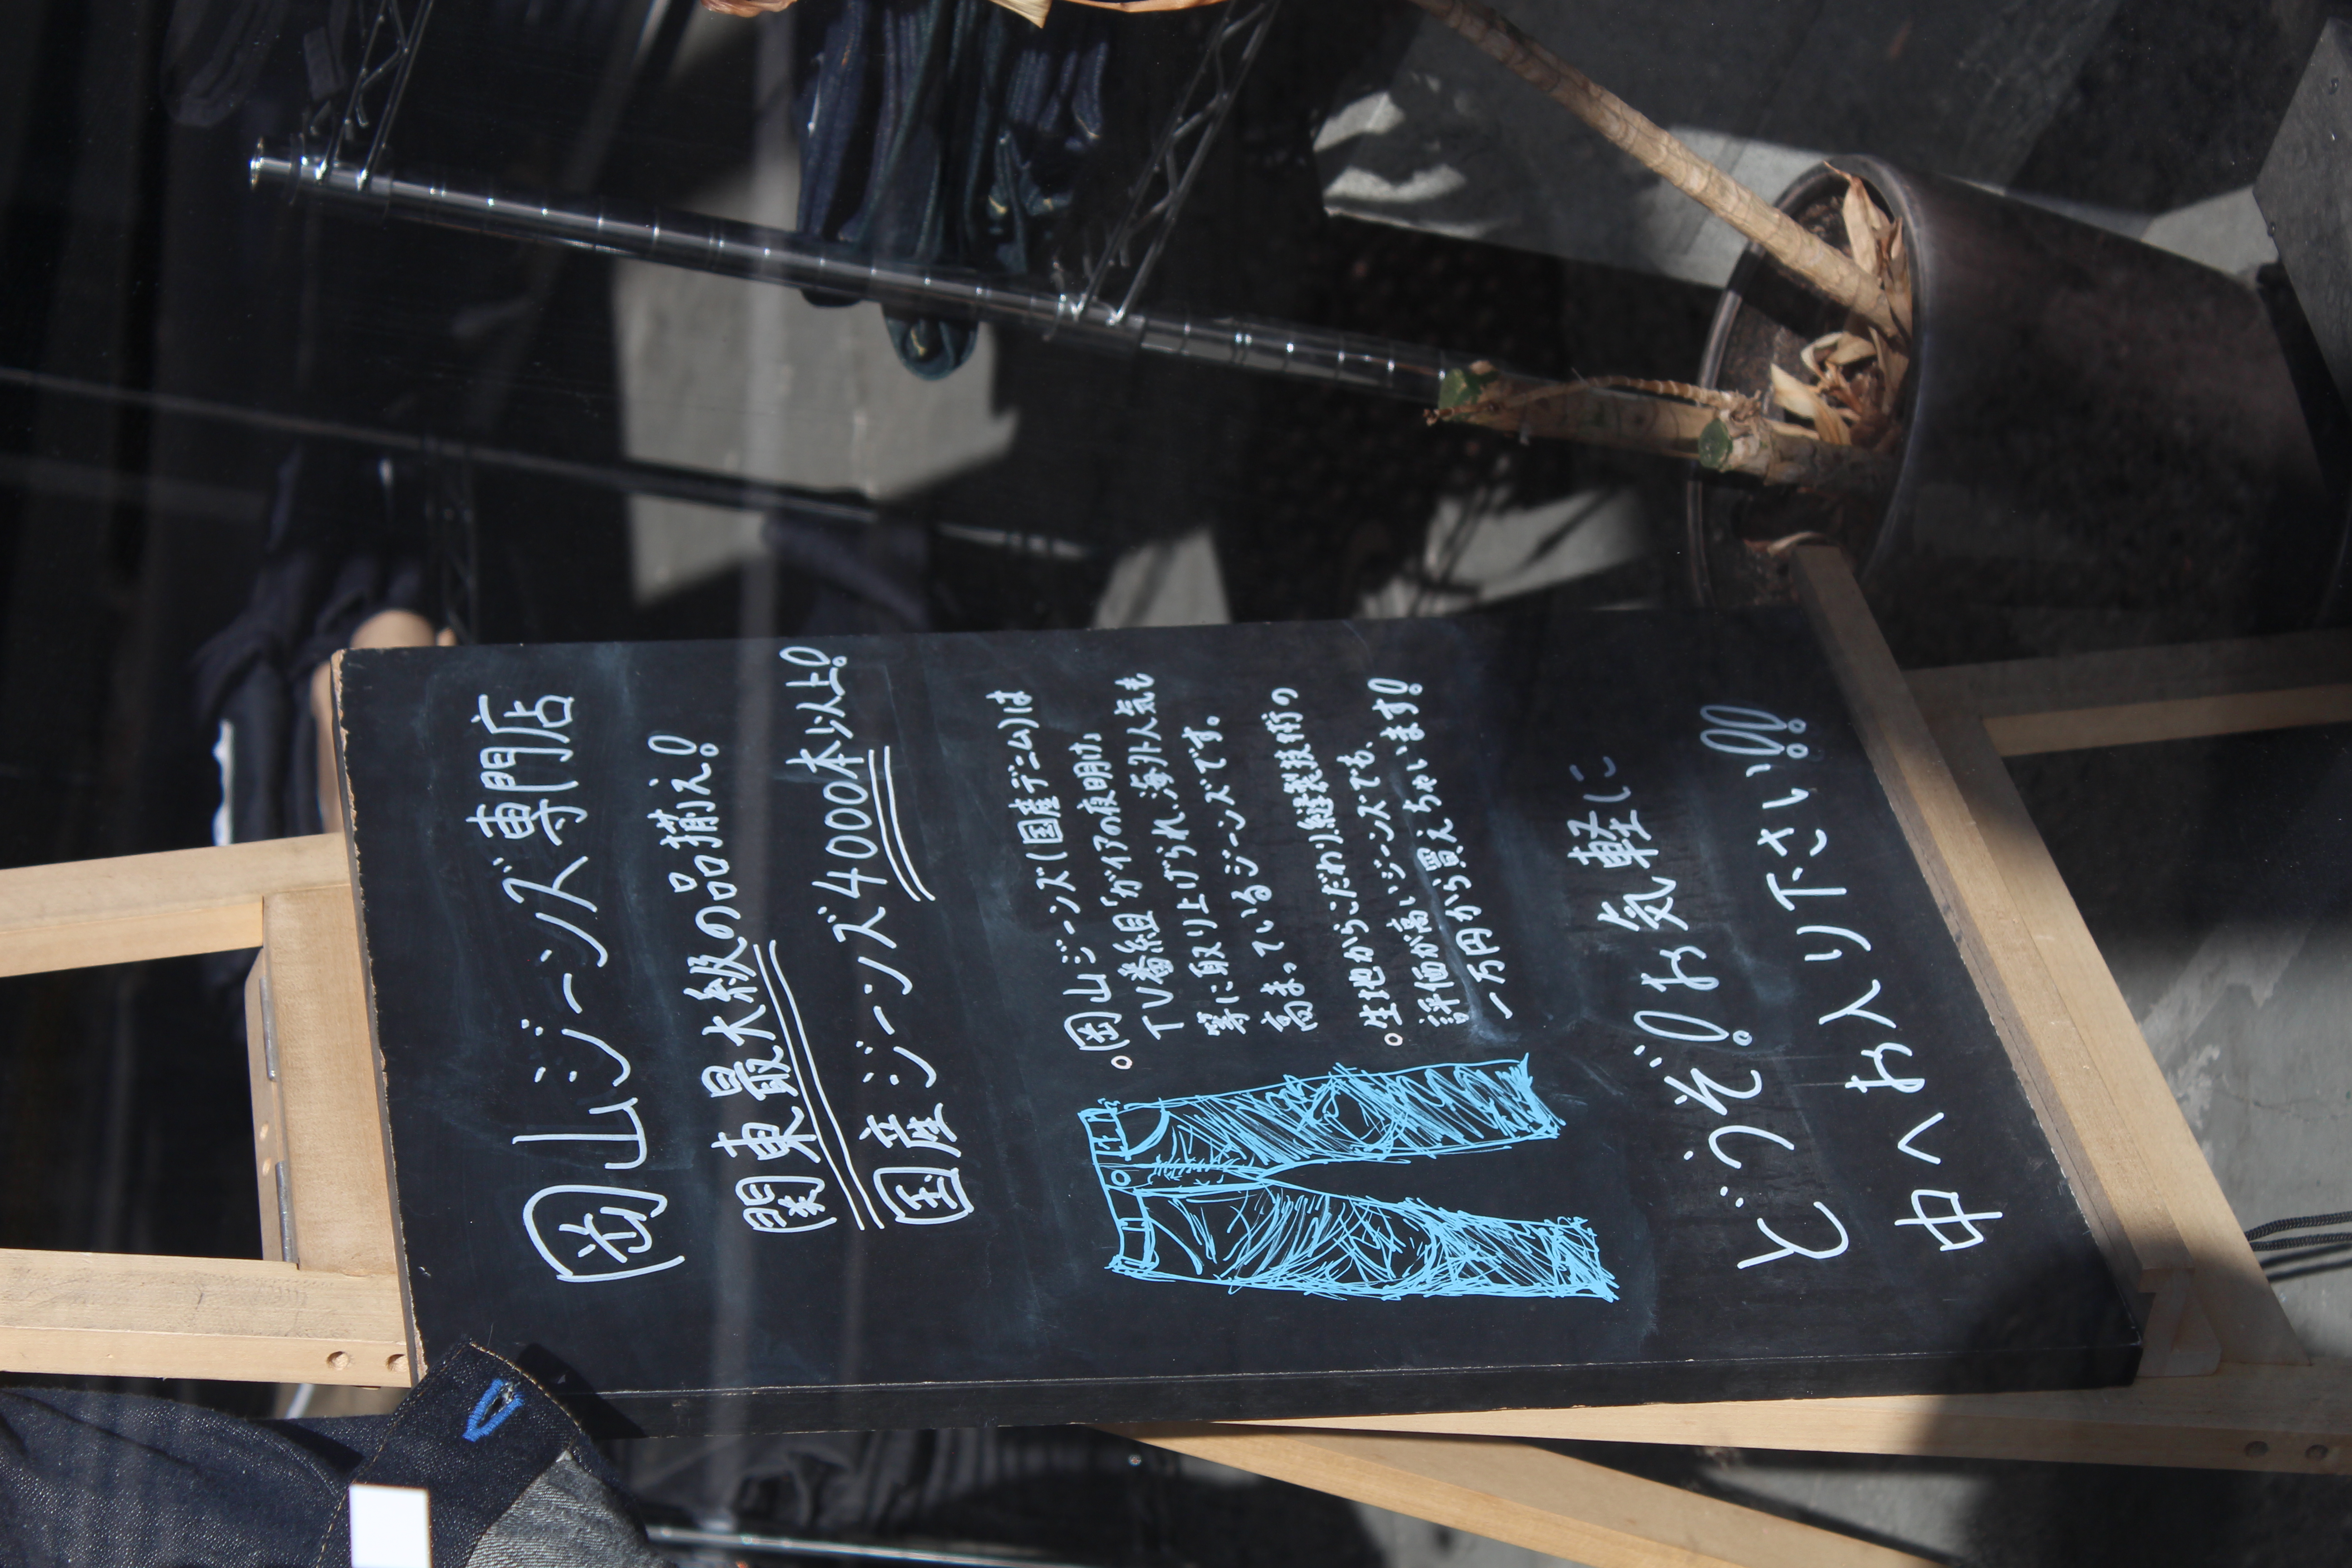 岡山ジーンズ専門店
関東最大級の品揃え!
国産ジーンズ4000本以上!
。岡山ジーンズ(国産デニム)は
TV番組「ガイアの夜明け」
等に取り上げられ、海外人気も
高まっているジーンズです。
。生地からこだわり、縫製技術の
評価が高いジーンズでも、
一万円から買えちゃいます!
どうぞ!お気軽に
中へお入り下さい!!